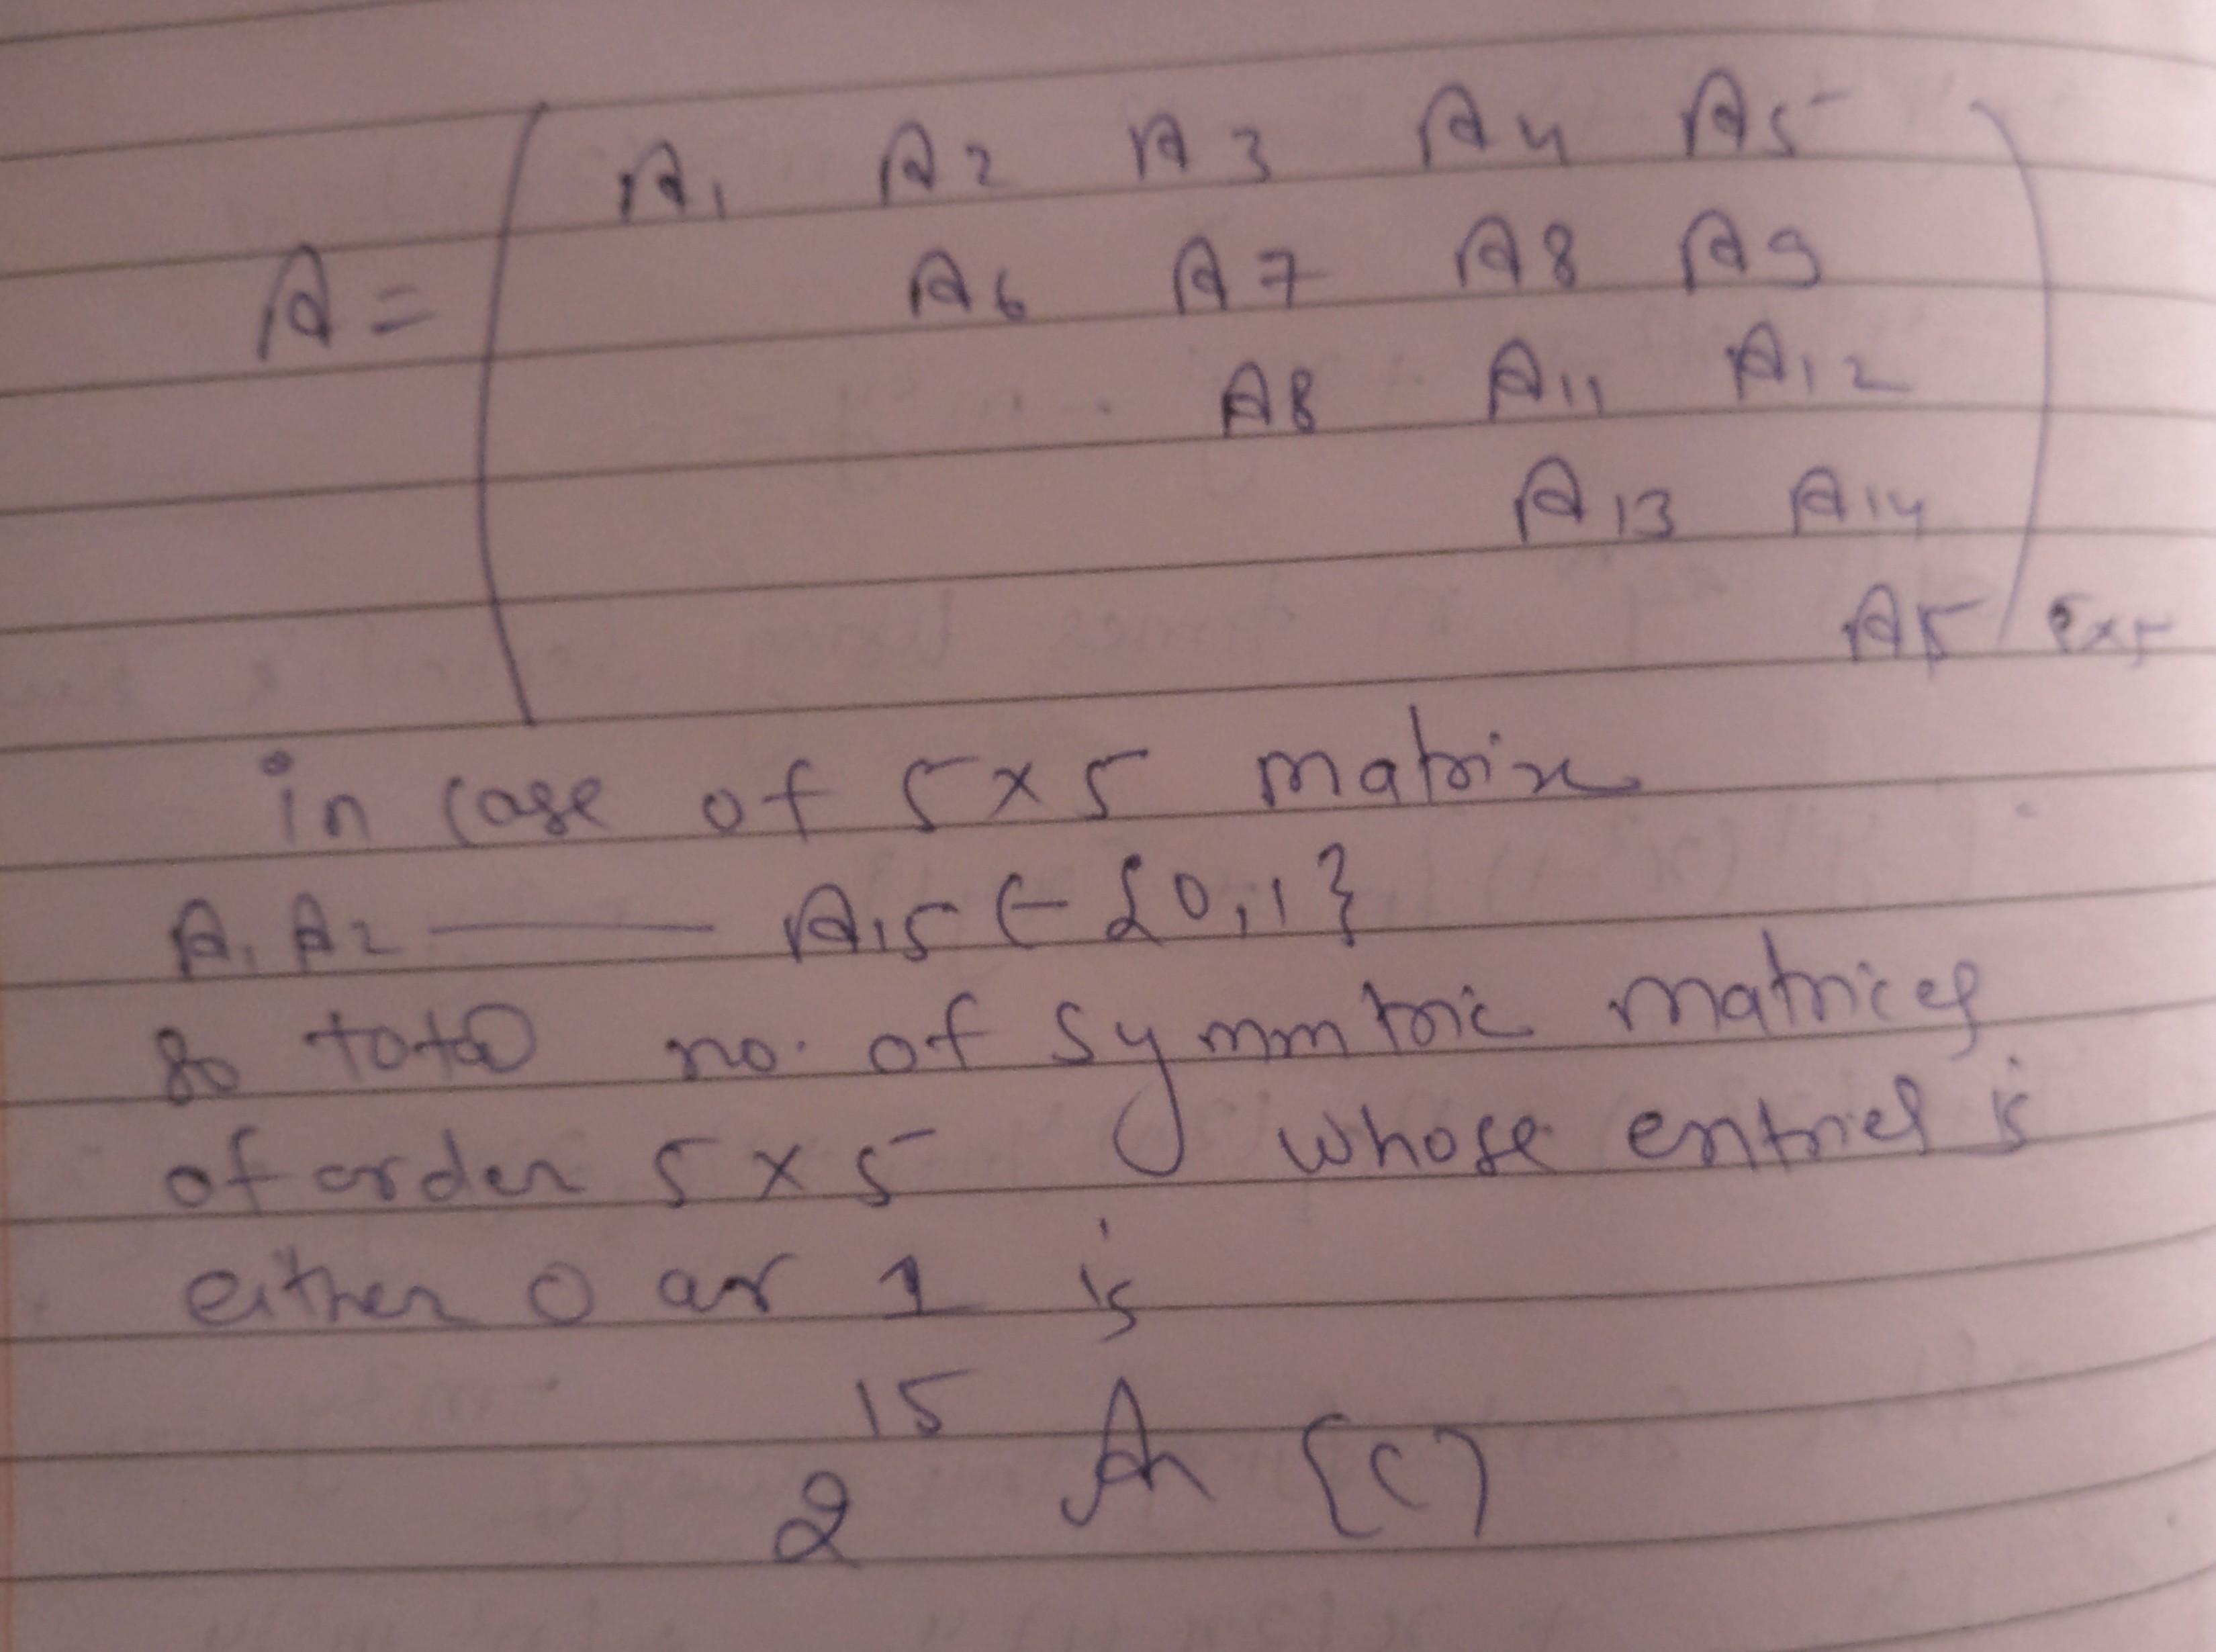 A1 A2 A3 A4 A5
A = A6 A7 A8 A9
A8 A11 A12
A13 A14
A5 5x5
in case of 5x5 matrix
A1 A2 —— A15 ∈ {0,1}
so total no. of symmtric matrices
of order 5x5 whose entries is
either 0 or 1 is
2^15 An (C)